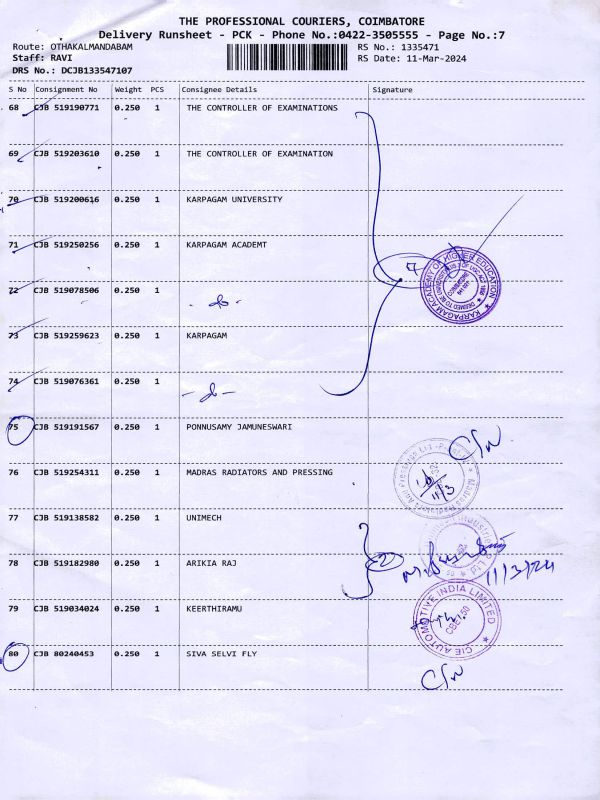 THE PROFESSIONAL COURIERS, COIMBATORE
Delivery Runsheet - PCK - Phone No.:0422-3505555 - Page No.:7
Route: OTHAKALMANDABAM
RS No.: 1335471
Staff: RAVI
RS Date: 11-Mar-2024
DRS No.: DCJB133547107
S No Consignment No Weight PCS Consignee Details Signature
68 CJB 519190771 0.250 1 THE CONTROLLER OF EXAMINATIONS
69 CJB 519203610 0.250 1 THE CONTROLLER OF EXAMINATION
70 CJB 519200616 0.250 1 KARPAGAM UNIVERSITY
71 CJB 519250256 0.250 1 KARPAGAM ACADEMT
7
KARPAGAM ACADEMY OF HIGHER EDUCATION
COIMBATORE
72 CJB 519078506 0.250 1 - do -
73 CJB 519259623 0.250 1 KARPAGAM
74 CJB 519076361 0.250 1 - do -
75 CJB 519191567 0.250 1 PONNUSAMY JAMUNESWARI
76 CJB 519254311 0.250 1 MADRAS RADIATORS AND PRESSING
11/3
77 CJB 519138582 0.250 1 UNIMECH
78 CJB 519182980 0.250 1 ARIKIA RAJ
2
11/3/24
79 CJB 519034024 0.250 1 KEERTHIRAMU
CIE AUTOMOTIVE INDIA LIMITED
80 CJB 80240453 0.250 1 SIVA SELVI FLY